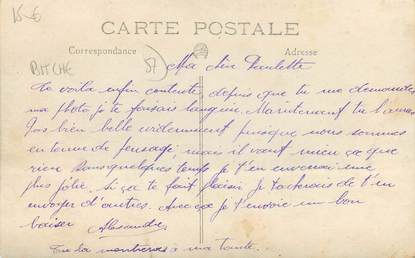 15€
CARTE POSTALE
Correspondance
Adresse
BITCHE
57
Ma chère Paulette
Te voilà enfin contente, depuis que tu me demandais
ma photo je te faisais languir. Maintenant tu l'auras
Pas bien belle évidemment puisque nous sommes
en tenue de forçage, mais il vaut mieux ça que
rien Dans quelques temps je t'en enverrai une
plus jolie. Si ça te fait plaisir je tacherais de t'en
envoyer d'autres. Avec ça je t'envoie un bon
baiser Alexandre
Tu la montreras à ma tante.